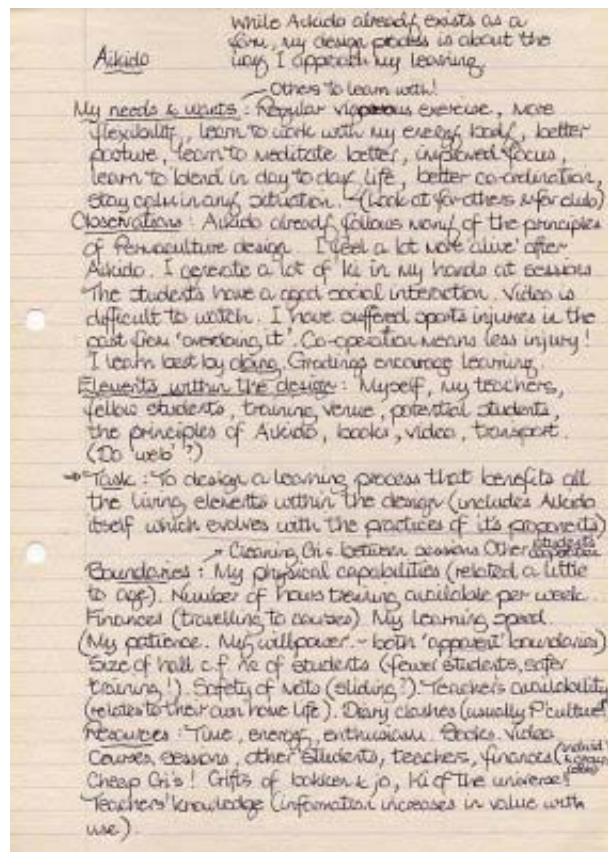 While Aikido already exists as a
form, my design process is about the
Aikido way I approach my learning.
Others to learn with!
My needs & wants : Regular vigorous exercise, more
flexibility, learn to work with my energy body, better
posture, learn to meditate better, improved focus,
learn to blend in day to day life, better co-ordination,
stay calm in any situation. - (Look at for others & for club)
Observations : Aikido already follows many of the principles
of Permaculture design. I feel a lot more 'alive' after
Aikido. I generate a lot of ki in my hands at sessions.
The students have a good social interaction. Video is
difficult to watch. I have suffered sports injuries in the
past from 'overdoing it'. Co-operation means less injury!
I learn best by doing. Gradings encourage learning.
Elements within the design : Myself, my teachers,
fellow students, training venue, potential students,
the principles of Aikido, books, video, transport.
(Do 'web'?)
Task : To design a learning process that benefits all
the living elements within the design (includes Aikido
itself which evolves with the practices of it's proponents)
Cleaning Gi's between sessions Other students
Boundaries : My physical capabilities (related a little
to age). Number of hours training available per week.
Finances (travelling to courses). My learning speed.
(My patience. My willpower. - both 'apparent' boundaries)
Size of hall c.f. no of students (fewer students, safer
training!). Safety of mats (sliding?). Teachers availability
(relates to their own home life). Diary clashes (usually P'culture)
Resources : Time, energy, enthusiasm. Books. Video
Courses, sessions, other students, teachers, finances (individ
Cheap Gi's! Gifts of bokken & jo, Ki of the universe!
Teachers' knowledge (information increases in value with
use).